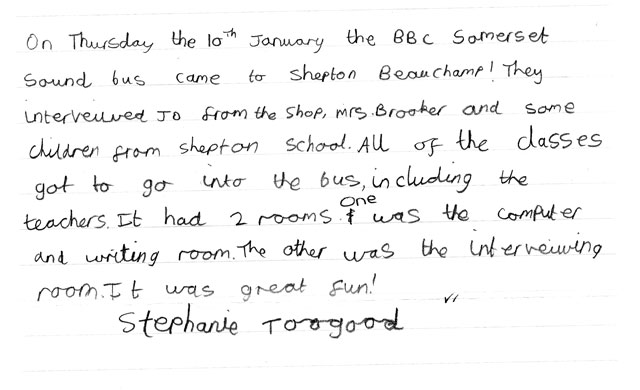 On Thursday the 10th January the BBC Somerset
Sound bus came to Shepton Beauchamp! They
interveiwed Jo from the Shop, Mrs. Brooker and some
children from shepton School. All of the classes
got to go into the bus, including the
teachers. It had 2 rooms. One was the computer
and writing room. The other was the interveiwing
room. It was great fun!
Stephanie Toogood